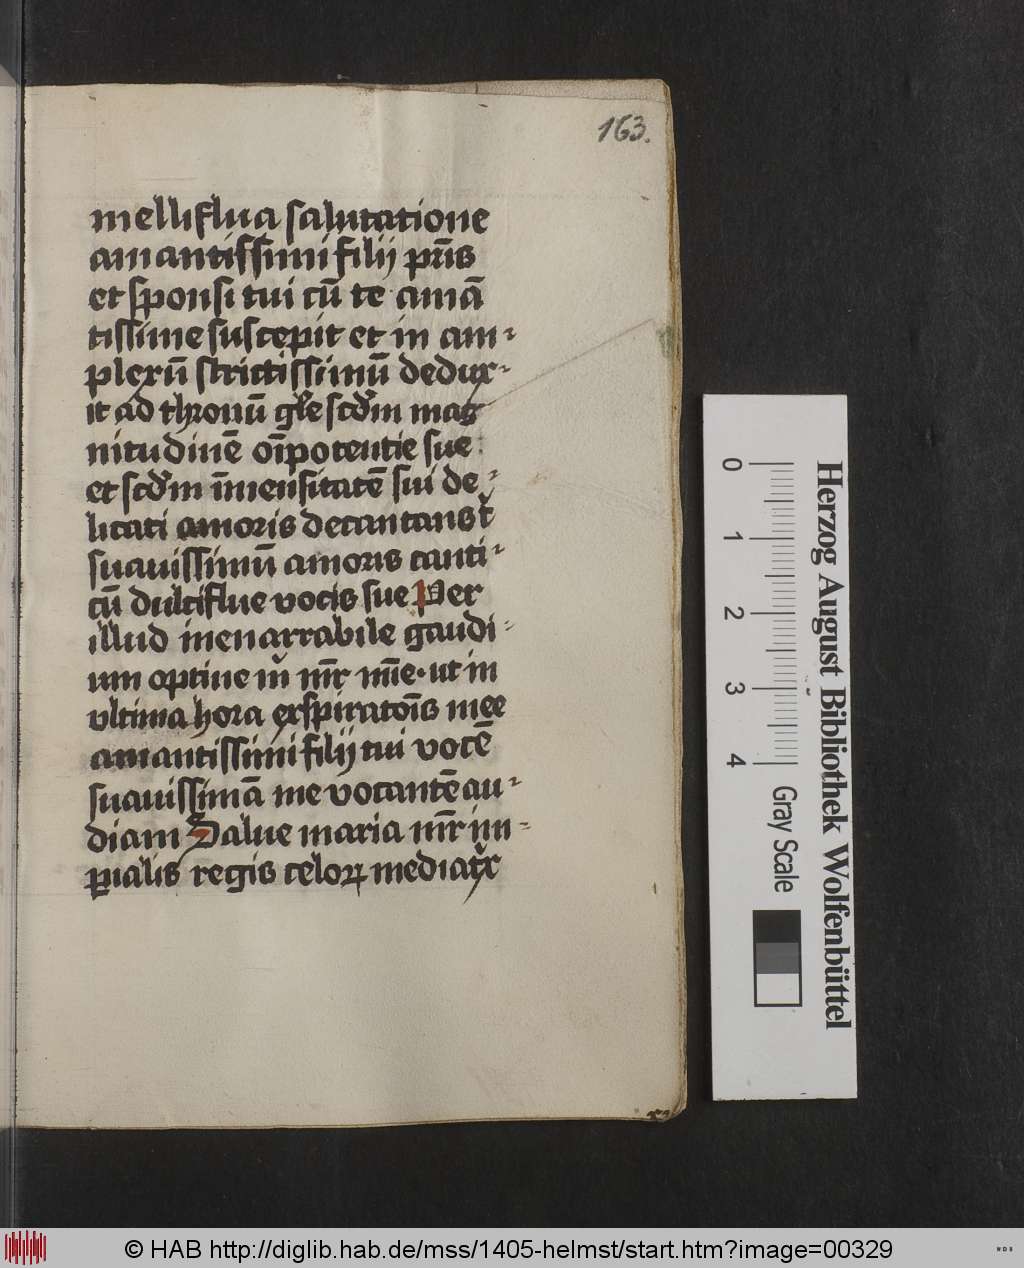 163.
melliflua salutatione
amantissimi filij pr̄is
et sponsi tui cū te amā
tissime suscepit et in am⸗
plexū strictissimū dedux⸗
it ad thronū gl̄e scd̄m mag
nitudinē oīpotentie sue
et scd̄m īmensitatē sui de⸗
licati amoris decantans t̄
suauissimū amoris canti⸗
cū dulciflue vocis sue Per
illud inenarrabile gaudi⸗
um optine m̄ mr̄ mīe· ut in
vltima hora exspiratōis mee
amantissimi filij tui vocē
suauissimā me vocantē au⸗
diam Salue maria mr̄ im⸗
ꝑialis regis celoꝝ mediatͥx
0 1 2 3 4
Herzog August Bibliothek Wolfenbüttel
Gray Scale
© HAB http://diglib.hab.de/mss/1405-helmst/start.htm?image=00329